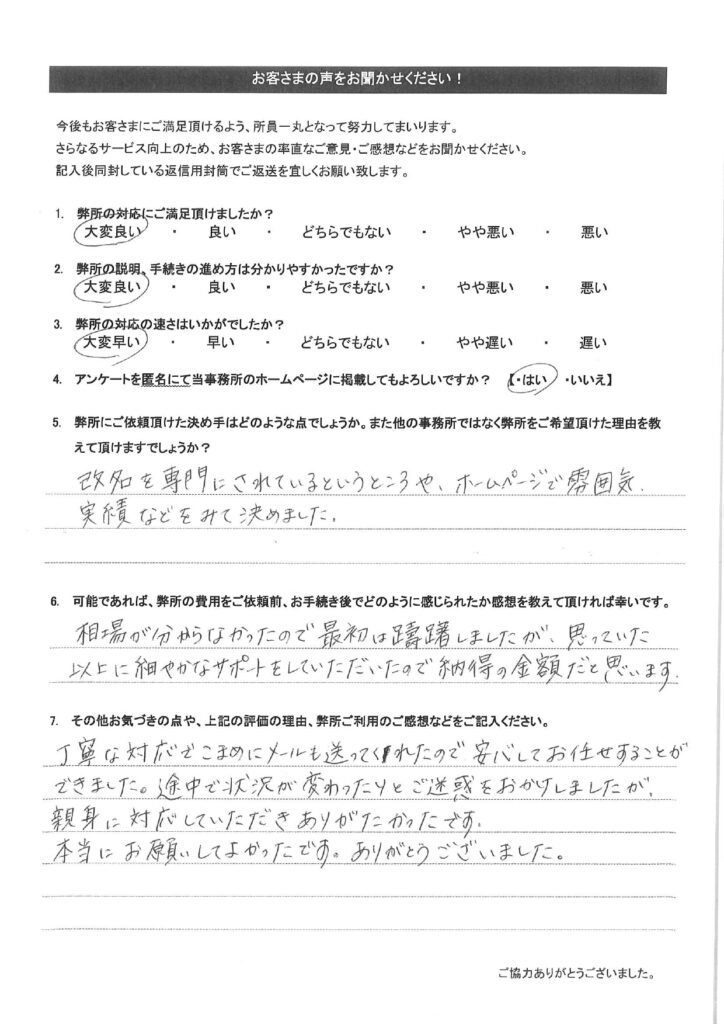 お客さまの声をお聞かせください！
今後もお客さまにご満足頂けるよう、所員一丸となって努力してまいります。
さらなるサービス向上のため、お客さまの率直なご意見・ご感想などをお聞かせください。
記入後同封している返信用封筒でご返送を宜しくお願い致します。
1. 弊所の対応にご満足頂けましたか？
大変良い ・ 良い ・ どちらでもない ・ やや悪い ・ 悪い
2. 弊所の説明、手続きの進め方は分かりやすかったですか？
大変良い ・ 良い ・ どちらでもない ・ やや悪い ・ 悪い
3. 弊所の対応の速さはいかがでしたか？
大変早い ・ 早い ・ どちらでもない ・ やや遅い ・ 遅い
4. アンケートを匿名にて当事務所のホームページに掲載してもよろしいですか？ 【・はい ・いいえ】
5. 弊所にご依頼頂けた決め手はどのような点でしょうか。また他の事務所ではなく弊所をご希望頂けた理由を教
えて頂けますでしょうか？
改名を専門にされているというところや、ホームページで雰囲気、
実績などをみて決めました。
6. 可能であれば、弊所の費用をご依頼前、お手続き後でどのように感じられたか感想を教えて頂ければ幸いです。
相場が分からなかったので最初は躊躇しましたが、思っていた
以上に細やかなサポートをしていただいたので納得の金額だと思います。
7. その他お気づきの点や、上記の評価の理由、弊所ご利用のご感想などをご記入ください。
丁寧な対応でこまめにメールも送ってくれたので安心してお任せすることが
できました。途中で状況が変わったりとご迷惑をおかけしましたが、
親身に対応していただきありがたかったです。
本当にお願いしてよかったです。ありがとうございました。
ご協力ありがとうございました。